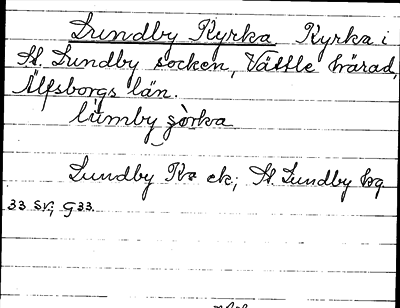 Lundby Kyrka Kyrka i
St. Lundby socken, Vättle härad,
Älfsborgs län.
lùmby şòrka
Lundby Ka ek; St. Lundby hg
33 SV; G33.